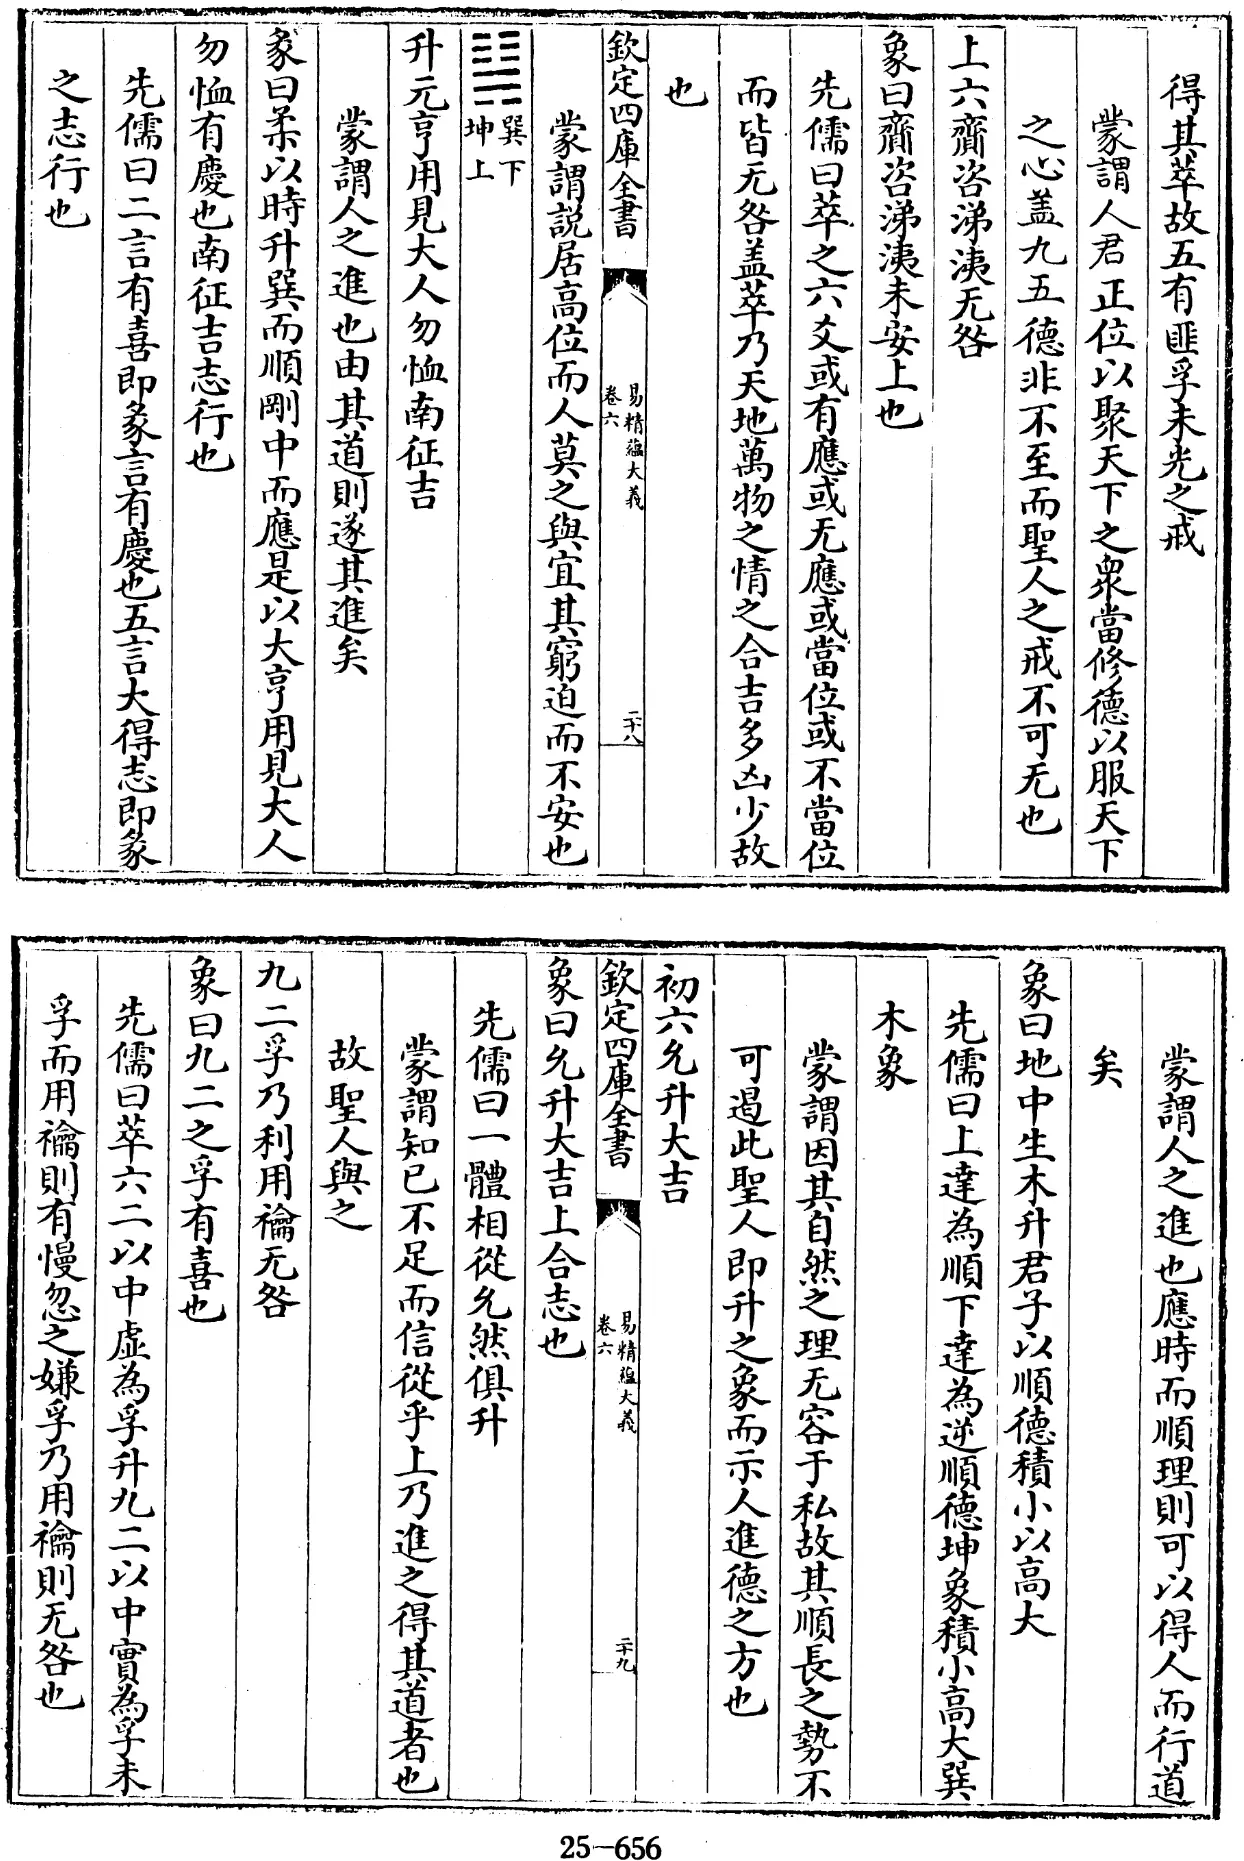 得其萃故五有匪孚未光之戒
蒙謂人君正位以聚天下之衆當修德以服天下
之心盖九五德非不至而聖人之戒不可无也
上六齎咨涕洟无咎
象曰齎咨涕洟未安上也
先儒曰萃之六爻或有應或无應或當位或不當位
而皆无咎盖萃乃天地萬物之情之合吉多凶少故
也
欽定四庫全書
易精蘊大義
卷六
二十八
蒙謂説居高位而人莫之與宜其窮迫而不安也
巽下
坤上
升元亨用見大人勿恤南征吉
蒙謂人之進也由其道則遂其進矣
彖曰柔以時升巽而順剛中而應是以大亨用見大人
勿恤有慶也南征吉志行也
先儒曰二言有喜即彖言有慶也五言大得志即彖
之志行也
蒙謂人之進也應時而順理則可以得人而行道
矣
象曰地中生木升君子以順德積小以高大
先儒曰上達為順下達為逆順德坤象積小高大巽
木象
蒙謂因其自然之理无容于私故其順長之勢不
可遏此聖人即升之象而示人進德之方也
初六允升大吉
欽定四庫全書
易精蘊大義
卷六
二十九
象曰允升大吉上合志也
先儒曰一體相從允然俱升
蒙謂知已不足而信從乎上乃進之得其道者也
故聖人與之
九二孚乃利用禴无咎
象曰九二之孚有喜也
先儒曰萃六二以中虛為孚升九二以中實為孚未
孚而用禴則有慢忽之嫌孚乃用禴則无咎也
25-656